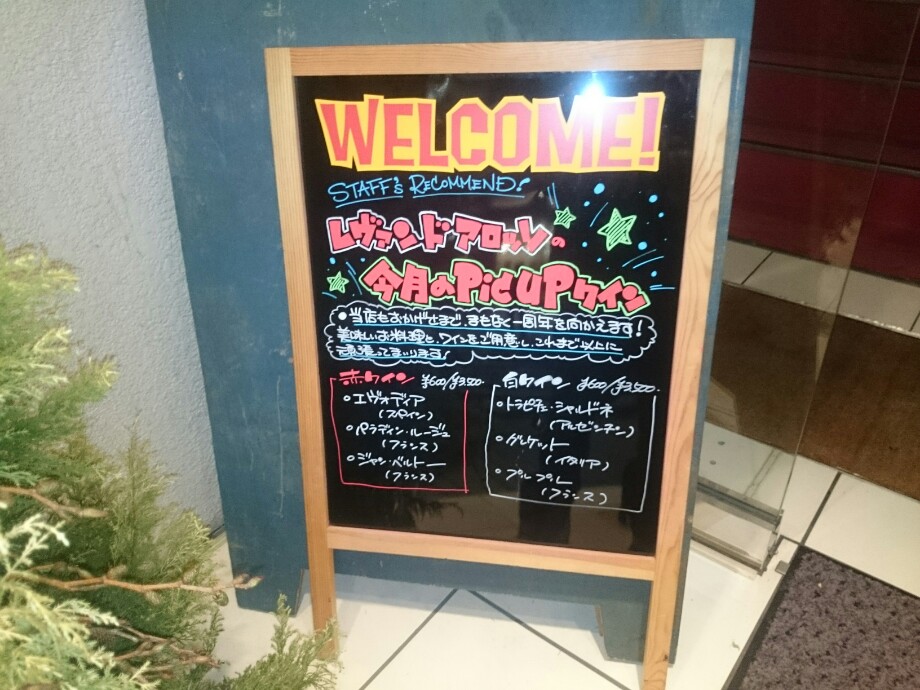 WELCOME!
STAFF'S RECOMMEND!
レヴァンド・アロッツの
今月のPic UPワイン
•当店もおかげさまで、まもなく一周年を向かえます!
美味しいお料理と、ワインをご用意し、これまで以上に
頑張ってまいります!
赤ワイン ¥600/¥3,500-
○エヴォディア
(スペイン)
○パラディン・ルージュ
(フランス)
○ジャン・ベルトー
(フランス)
白ワイン ¥600/¥3,500-
○トラピチェ・シャルドネ
(アルゼンチン)
○グレケット
(イタリア)
○プルプレ
(フランス)